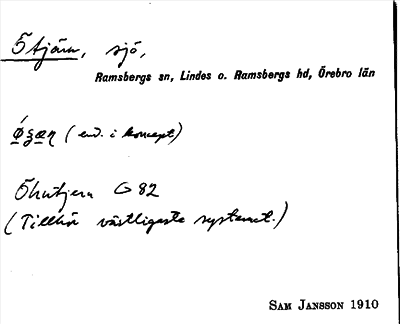 Ötjärn, sjö,
Ramsbergs sn, Lindes o. Ramsbergs hd, Örebro län
(end. i koncept)
G 82
(Tillhör västligaste systemet.)
SAM JANSSON 1910